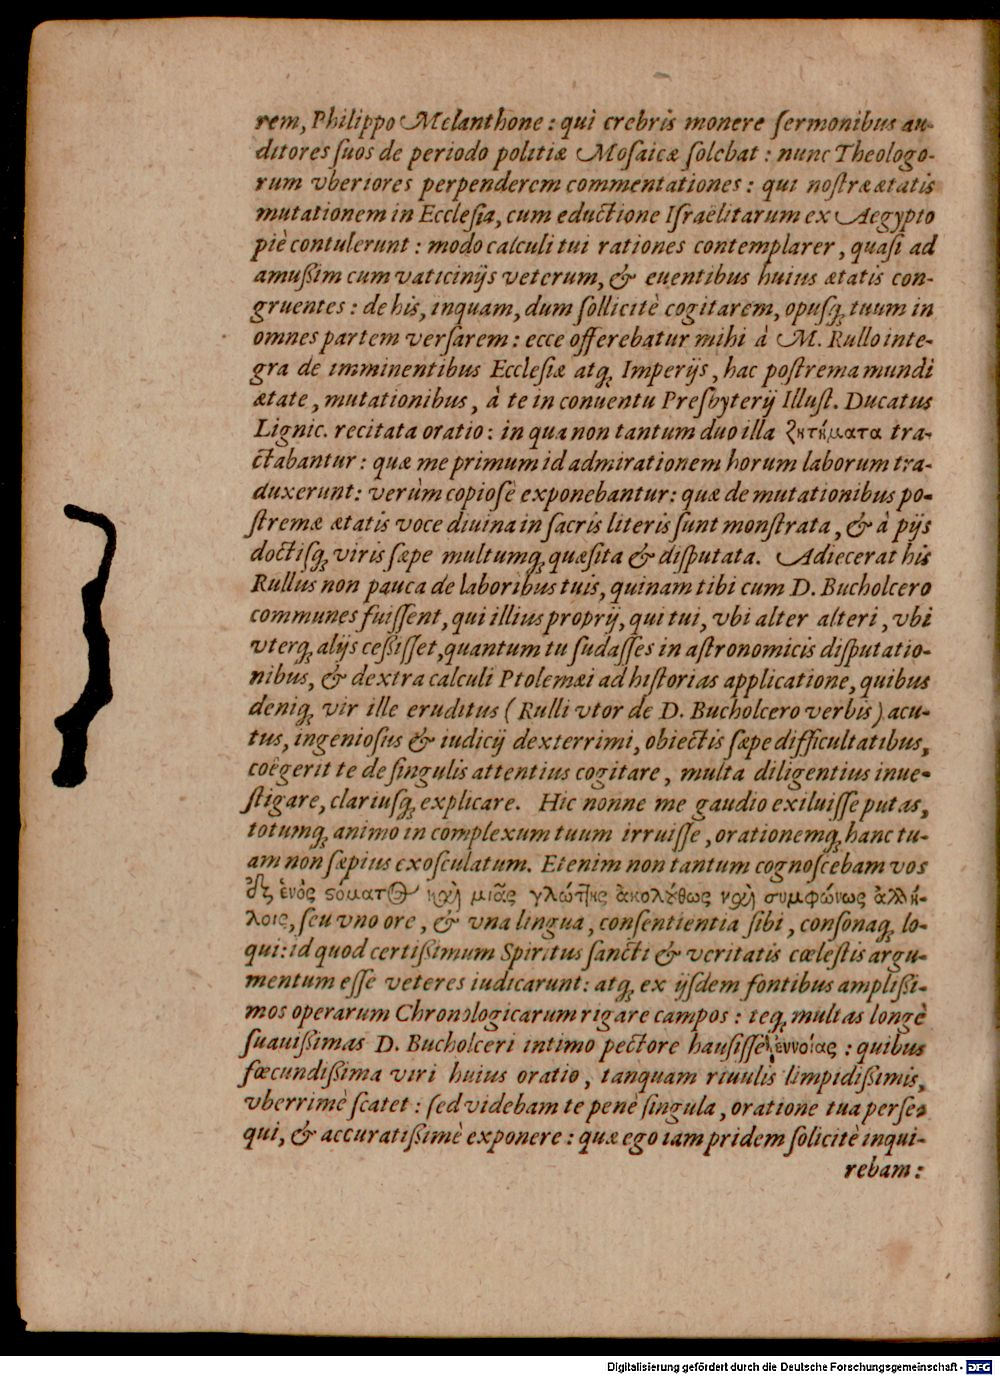 rem, Philippo Melanthone : qui crebris monere ſermonibus au-
ditores ſuos de periodo politiæ Moſaicæ ſolebat : nunc Theologo-
rum vberiores perpenderem commentationes : qui noſtræ ætatis
mutationem in Eccleſia, cum eductione Iſraëlitarum ex Aegypto
piè contulerunt : modo calculi tui rationes contemplarer, quaſi ad
amußim cum vaticinijs veterum, & euentibus huius ætatis con-
gruentes : de his, inquam, dum ſollicitè cogitarem, opuſq́; tuum in
omnes partem verſarem : ecce offerebatur mihi à M. Rullo inte-
gra de imminentibus Eccleſiæ atq́; Imperijs, hac poſtrema mundi
ætate, mutationibus, à te in conuentu Presbyterij Illuſt. Ducatus
Lignic. recitata oratio : in qua non tantum duo illa ζητήματα tra-
ctabantur : quæ me primum id admirationem horum laborum tra-
duxerunt : verùm copioſè exponebantur : quæ de mutationibus po-
ſtremæ ætatis voce diuina in ſacris literis ſunt monſtrata, & à pijs
doctiſq́; viris ſæpe multumq́; quæſita & diſputata. Adiecerat his
Rullus non pauca de laboribus tuis, quinam tibi cum D. Bucholcero
communes fuiſſent, qui illius proprij, qui tui, vbi alter alteri, vbi
vterq́; alijs ceßiſſet, quantum tu ſudaſſes in aſtronomicis diſputatio-
nibus, & dextra calculi Ptolemæi ad hiſtorias applicatione, quibus
deniq́; vir ille eruditus ( Rulli vtor de D. Bucholcero verbis ) acu-
tus, ingenioſus & iudicij dexterrimi, obiectis ſæpe difficultatibus,
coëgerit te de ſingulis attentius cogitare, multa diligentius inue-
ſtigare, clariuſq́; explicare. Hic nonne me gaudio exiluiſſe putas,
totumq́; animo in complexum tuum irruiſſe, orationemq́; hanc tu-
am non ſæpius exoſculatum. Etenim non tantum cognoſcebam vos
ἐξ ἑνὸς ϛόματος καὶ μιᾶς γλώττης ἀκολούθως καὶ συμφώνως ἀλλή-
λοις, ſeu vno ore, & vna lingua, conſentientia ſibi, conſonaq́; lo-
qui : id quod certißimum Spiritus ſancti & veritatis cœleſtis argu-
mentum eſſe veteres iudicarunt : atq́; ex ijſdem fontibus amplißi-
mos operarum Chronologicarum rigare campos : teq́; multas longè
ſuauißimas D. Bucholceri intimo pectore hauſiſſe ἐννοίας : quibus
fœcundißima viri huius oratio, tanquam riuulis limpidißimis,
vberrimè ſcatet : ſed videbam te penè ſingula, oratione tua perſe-
qui, & accuratißimè exponere : quæ ego iam pridem ſolicitè inqui-
rebam :
Digitalisierung gefördert durch die Deutsche Forschungsgemeinschaft - DFG